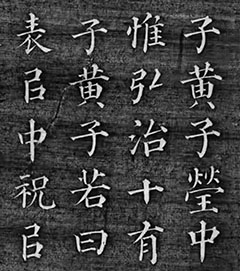 子黄子瑩中
惟弘治十有
子黄子若曰
表㠯申祝㠯